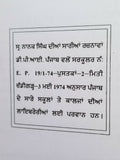 ਸ੍ਰ: ਨਾਨਕ ਸਿੰਘ ਦੀਆਂ ਸਾਰੀਆਂ ਰਚਨਾਵਾਂ
ਡੀ.ਪੀ.ਆਈ. ਪੰਜਾਬ ਵਲੋਂ ਸਰਕੂਲਰ ਨੰ:
ਈ. ਪੀ. 19/1-74-ਪੁਸਤਕਾਂ-2-ਮਿਤੀ
ਚੰਡੀਗੜ੍ਹ-3 ਮਈ 1974 ਅਨੁਸਾਰ ਪੰਜਾਬ
ਦੇ ਸਾਰੇ ਸਕੂਲਾਂ ਤੇ ਕਾਲਜਾਂ ਦੀਆਂ
ਲਾਇਬਰੇਰੀਆਂ ਲਈ ਪਰਵਾਨ ਹਨ।